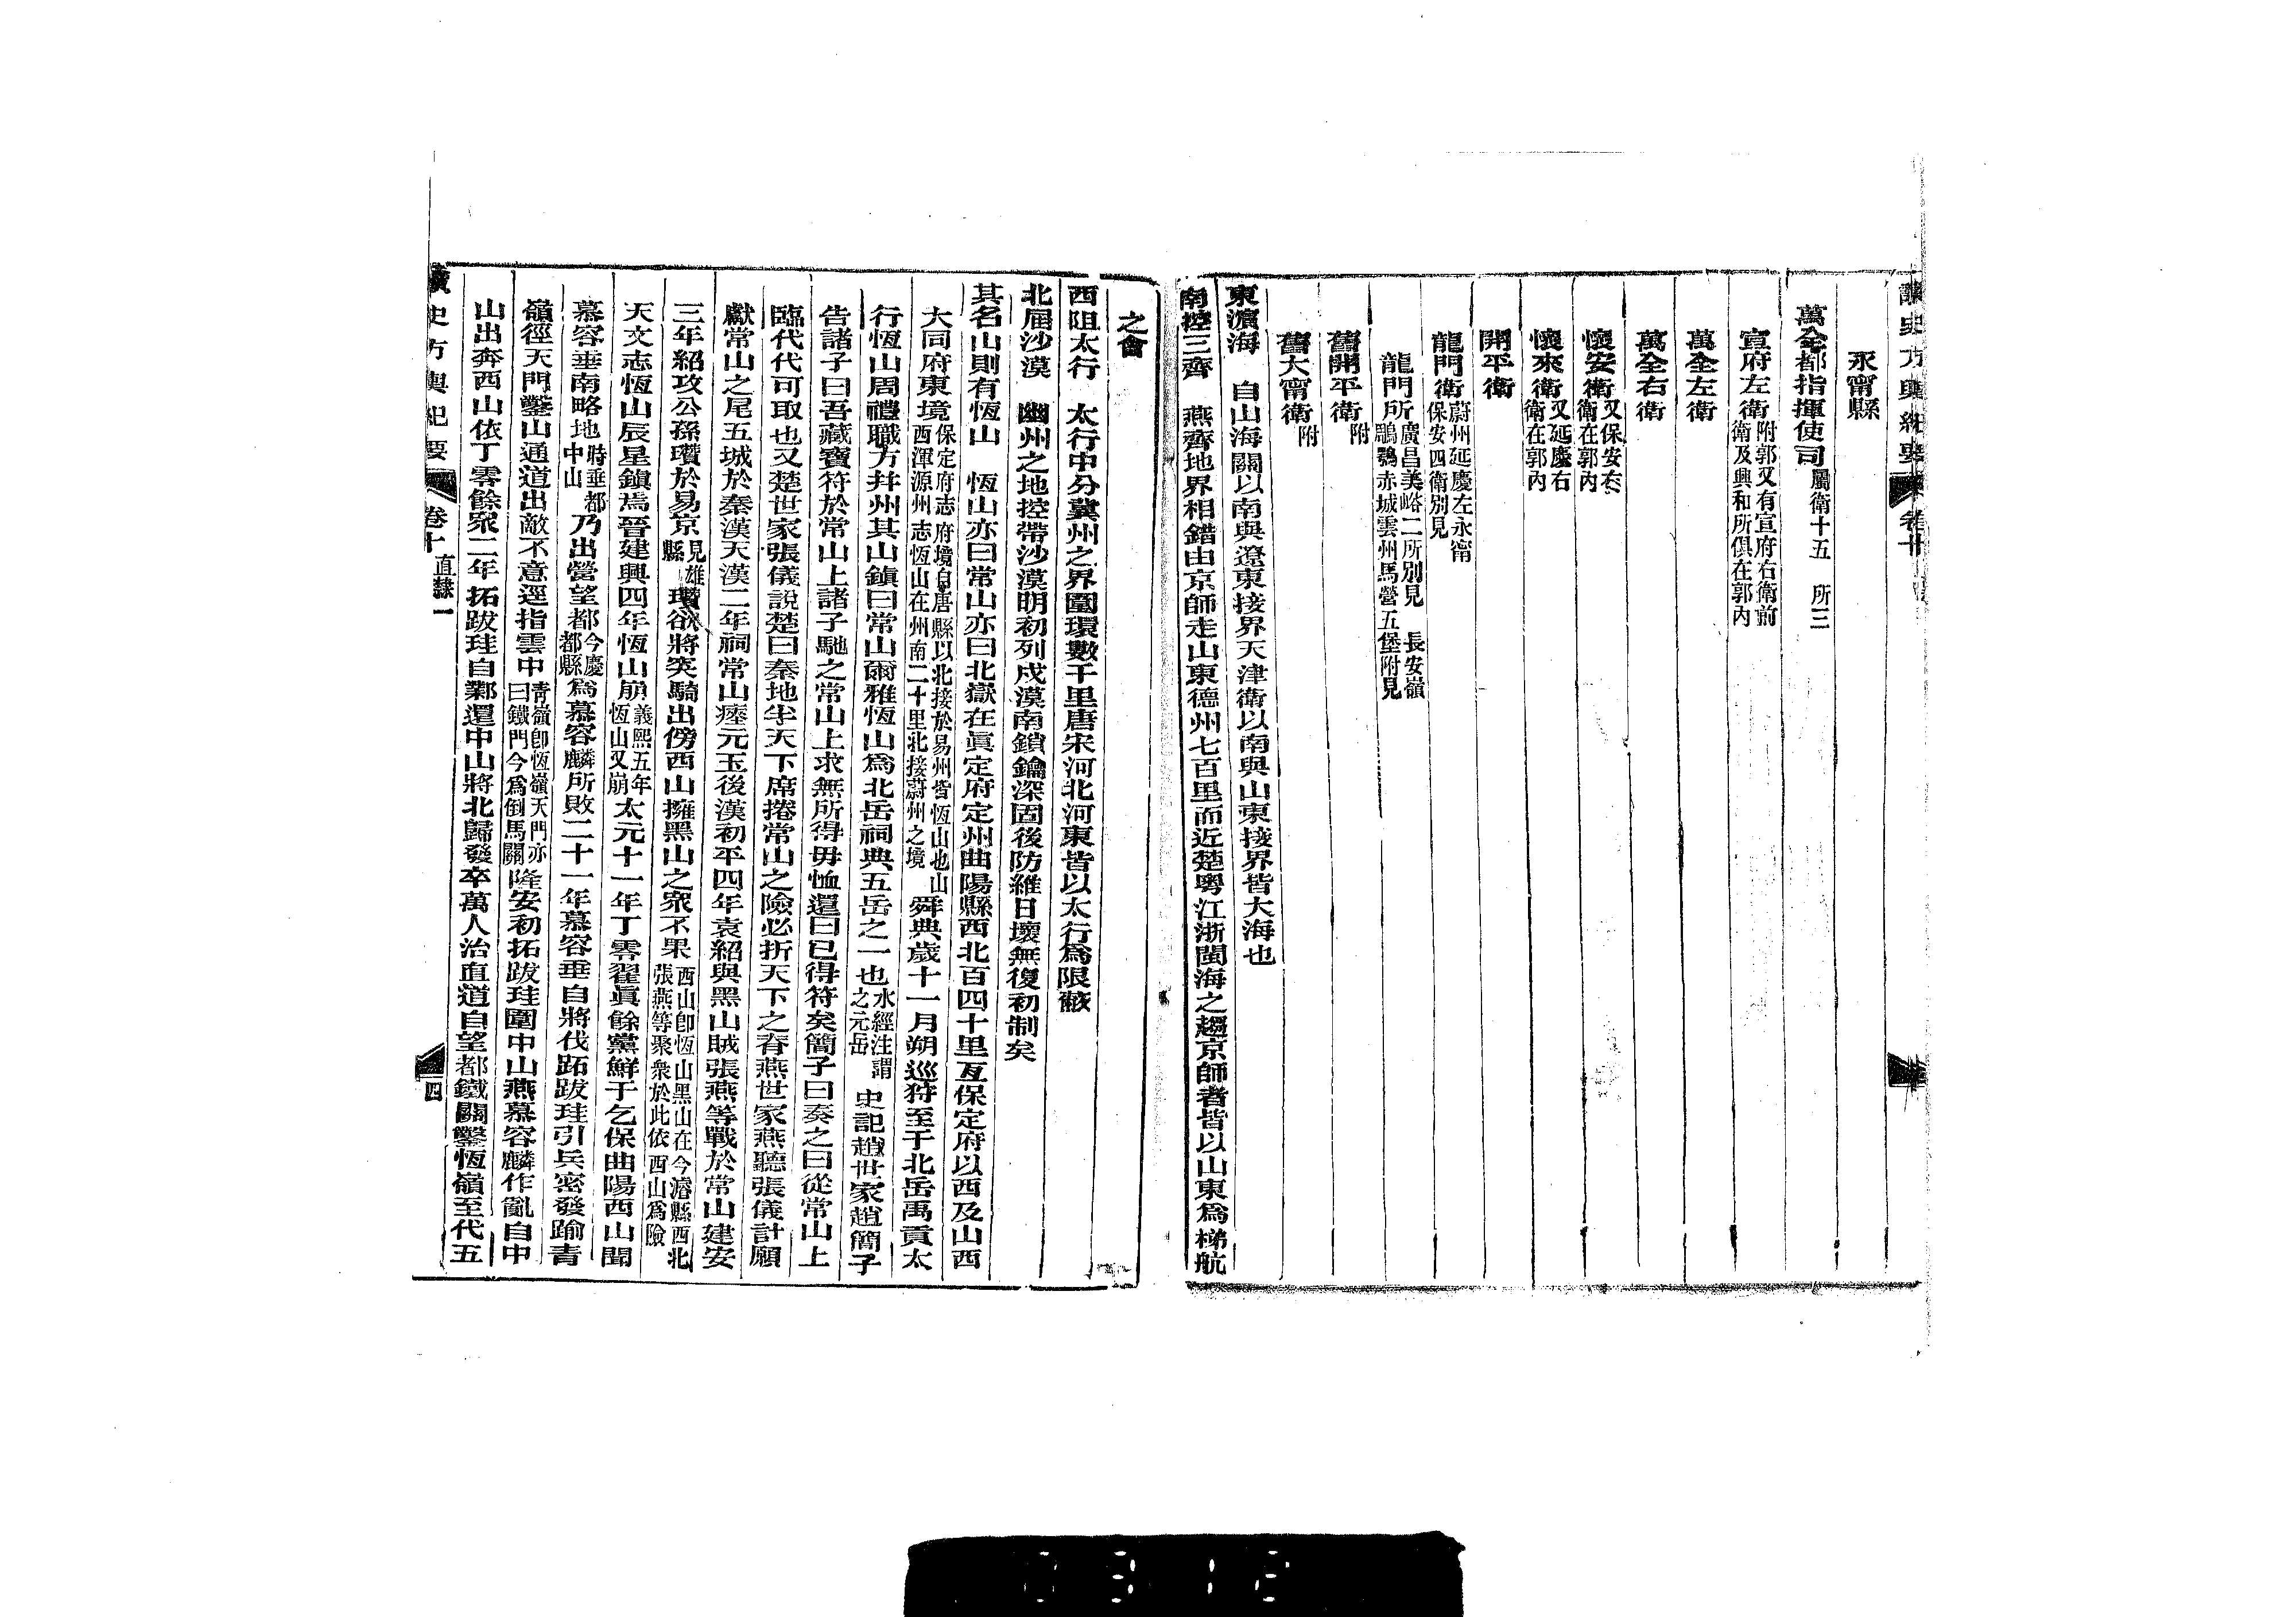 讀史方輿紀要 卷十
永甯縣
萬全都指揮使司屬衛十五 所三
宣府左衛附郭又有宣府右衛前衛及興和所俱在郭內
萬全左衛
萬全右衛
懷安衛又保安右衛在郭內
懷來衛又延慶右衛在郭內
開平衛
龍門衛蔚州延慶左永甯保安四衛別見
龍門所廣昌美峪二所別見 長安嶺鵰鶚赤城雲州馬營五堡附見
舊開平衛附
舊大甯衛附
東濱海 自山海關以南與遼東接界天津衛以南與山東接界皆大海也
南控三齊 燕齊地界相錯由京師走山東德州七百里而近楚粵江浙閩海之趨京師者皆以山東為梯航
之會
西阻太行 太行中分冀州之界圍環數千里唐宋河北河東皆以太行為限蔽
北屆沙漠 幽州之地控帶沙漠明初列戍漠南鎖鑰深固後防維日壞無復初制矣
其名山則有恆山 恆山亦曰常山亦曰北嶽在眞定府定州曲陽縣西北百四十里亙保定府以西及山西
大同府東境保定府志府境自唐縣以北接於易州皆恆山也山西渾源州志恆山在州南二十里北接蔚州之境舜典歲十一月朔巡狩至于北岳禹貢太
行恆山周禮職方并州其山鎮曰常山爾雅恆山為北岳祠典五岳之一也水經注謂之元岳 史記趙世家趙簡子
告諸子曰吾藏寶符於常山上諸子馳之常山上求無所得毋恤還曰已得符矣簡子曰奏之曰從常山上
臨代代可取也又楚世家張儀說楚曰秦地半天下席捲常山之險必折天下之脊燕世家燕聽張儀計願
獻常山之尾五城於秦漢天漢二年祠常山瘞元玉後漢初平四年袁紹與黑山賊張燕等戰於常山建安
三年紹攻公孫瓚於易京見雄縣瓚欲將突騎出傍西山擁黑山之眾不果西山卽恆山黑山在今濬縣西北張燕等聚衆於此依西山為險
天文志恆山辰星鎮焉晉建興四年恆山崩義熙五年恆山又崩太元十一年丁零翟眞餘黨鮮于乞保曲陽西山聞
慕容垂南略地時垂都中山乃出營望都今慶都縣為慕容麟所敗二十一年慕容垂自將伐跖跋珪引兵密發踰青
嶺徑天門鑿山通道出敵不意逕指雲中靑嶺卽恆嶺天門亦曰鐵門今為倒馬關隆安初拓跋珪圍中山燕慕容麟作亂自中
山出奔西山依丁零餘眾二年拓跋珪自鄴還中山將北歸發卒萬人治直道自望都鐵關鑿恆嶺至代五
讀史方輿紀要 卷十 直隸一 四